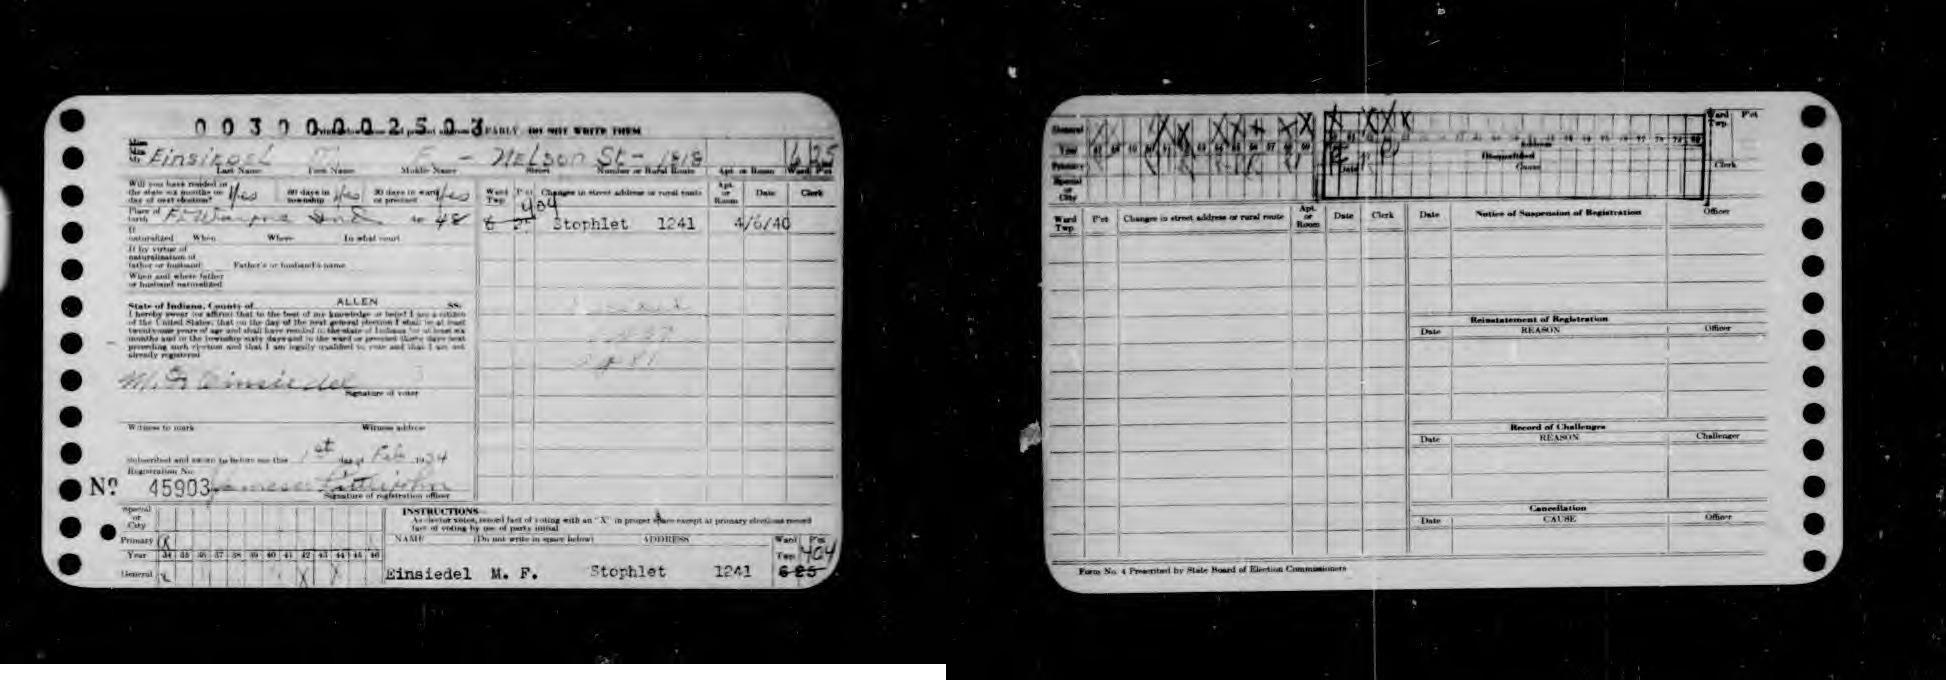 003000002503 EARLY DO NOT WRITE THEM
Einsiedel M. F. - Nelson St - 1818 6 25
Last Name First Name Middle Name Street Number or Rural Route Apt. or Room Ward Pct
Will you have resided in the state six months on day of next election? Yes 60 days in township Yes 30 days in ward or precinct Yes
Ward Twp. Pct Changes in street address or rural route Apt. or Room Date Clerk
404
Place of birth Ft Wayne Ind 48
6 25 Stophlet 1241 4/6/40
If naturalized When Where In what court
If by virtue of naturalization of father or husband Father's or husband's name
When and where father or husband naturalized
State of Indiana, County of ALLEN SS:
I hereby swear (or affirm) that to the best of my knowledge or belief I am a citizen
of the United States; that on the day of the next general election I shall be at least
twenty-one years of age and shall have resided in the state of Indiana for at least six
months and in the township sixty days and in the ward or precinct thirty days next
preceding such election and that I am legally qualified to vote and that I am not
already registered
M. F. Einsiedel
Signature of voter
Witness to mark Witness address
Subscribed and sworn to before me this 1st day Feb 1934
Registration No.
No. 45903 James Littlejohn
Signature of registration officer
Special or City
Primary X
Year 34 35 36 37 38 39 40 41 42 43 44 45 46
General X X X
INSTRUCTIONS
As elector votes, record fact of voting with an "X" in proper space except at primary elections record
fact of voting by use of party initial
NAME (Do not write in space below) ADDRESS Ward Twp. Pct
404
Einsiedel M. F. Stophlet 1241 6-25
General
Year
Primary
Special or City
Disqualified
Cause
Date
Ward Twp. Pct
Clerk
Ward Twp. Pct Changes in street address or rural route Apt. or Room Date Clerk Date Notice of Suspension of Registration Officer
Reinstatement of Registration
Date REASON Officer
Record of Challenges
Date REASON Challenger
Cancellation
Date CAUSE Officer
Form No. 4 Prescribed by State Board of Election Commissioners